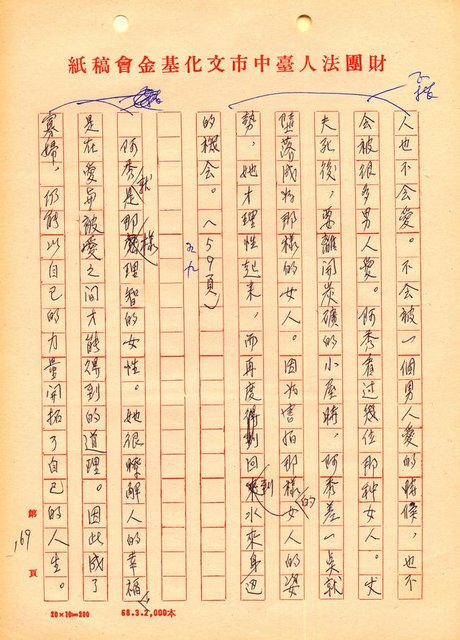 財團法人臺中市文化基金會稿紙
人也不会愛。不会被一個男人愛的時候,也不
会被很多男人愛。阿秀看过幾位那种女人。丈
夫死後,要離開炭礦的小屋時,阿秀差一點就
墮落成为那樣的女人。因为害怕那樣的女人的姿
勢,她才理性起来,而再度得到回到水來身边
的機会。(59頁)
五九
阿秀就是那樣理智的女性。她很瞭解人的幸福,
是在愛与被愛之间才能得到的道理。因此成了
寡婦,仍能以自己的力量開拓了自己的人生。
第 169 頁
20×10=200
68.3.2,000本